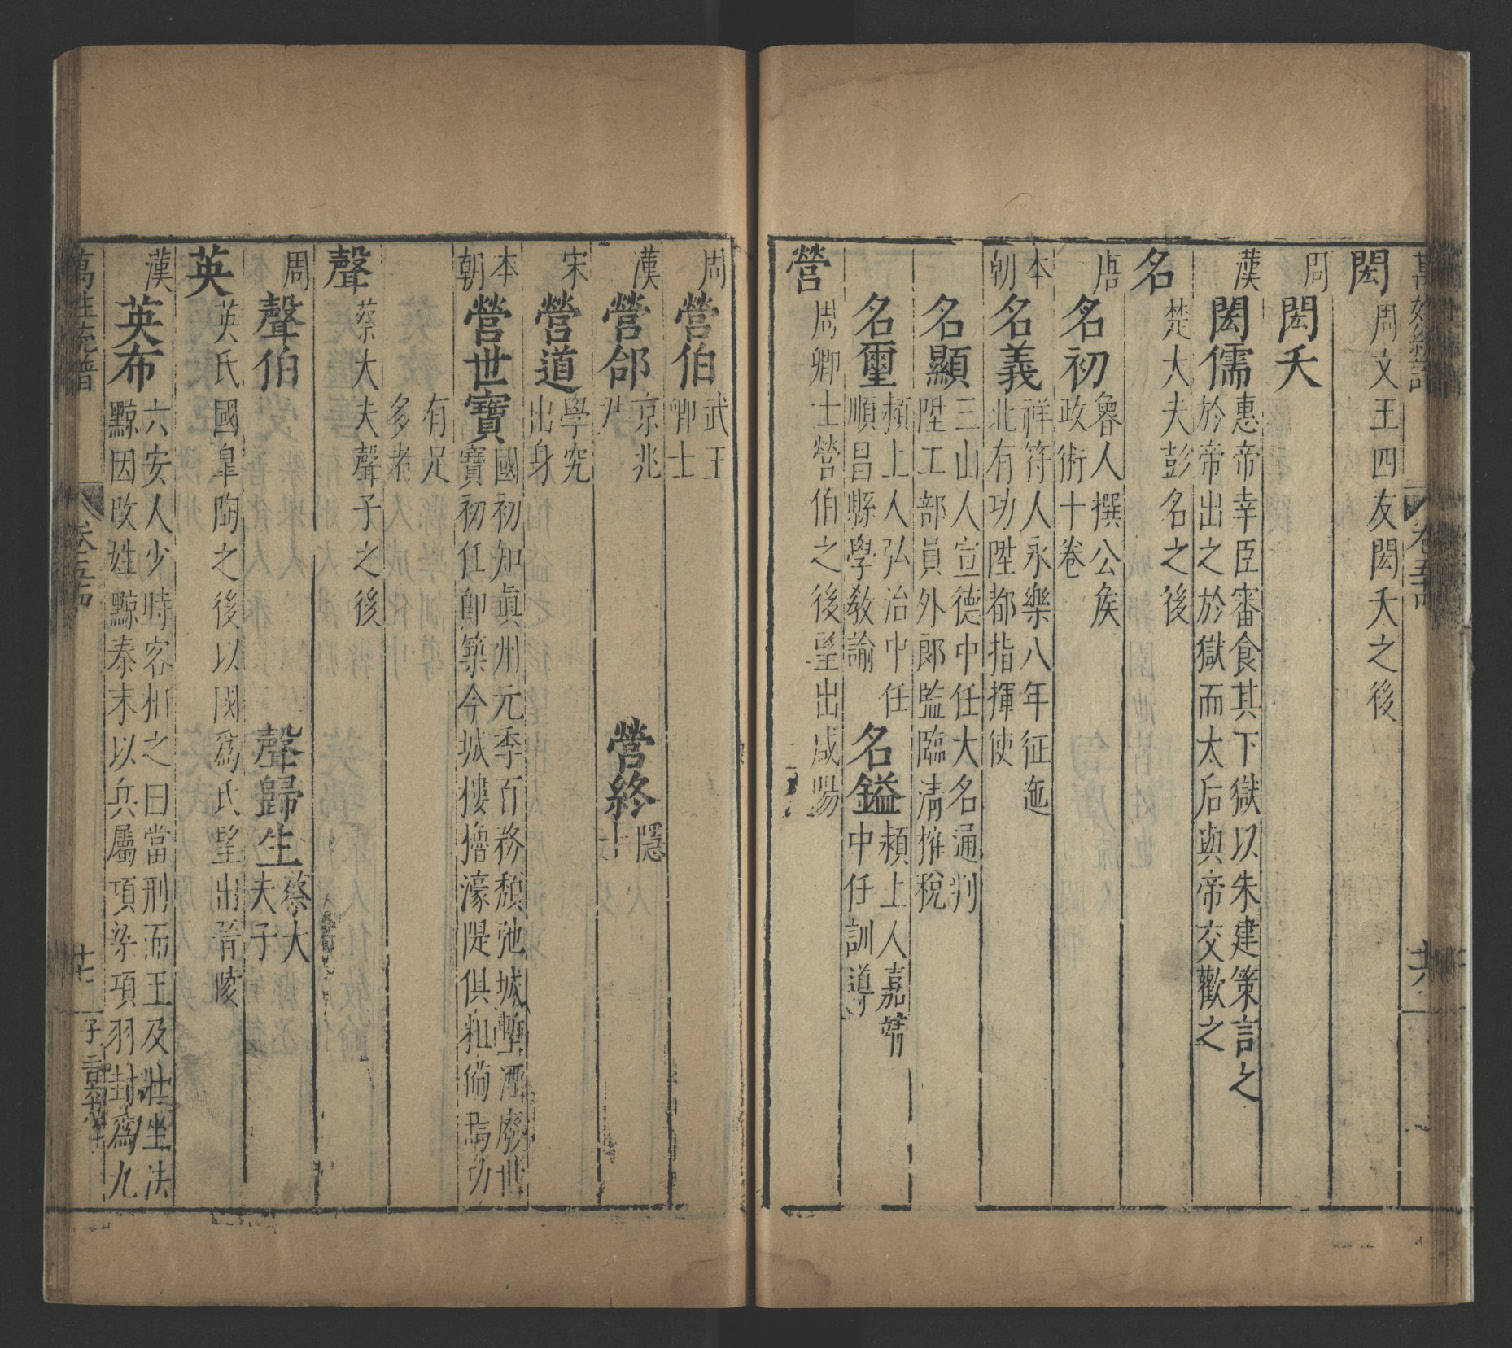 閎
周文王四友閎夭之後
周
閎夭
漢
閎儒
惠帝幸臣審食其下獄以朱建策言之
於帝出之於獄而太后與帝交歡之
名
楚大夫彭名之後
唐
名初
魯人撰公侯
政術十卷
本朝
名義
祥符人永樂八年征迤
北有功陞都指揮使
名顯
三山人宣德中任大名通判
陞工部員外郎監臨清搉稅
名璽
頴上人弘治中任
順昌縣學敎諭
名鎰
頴上人嘉靖
中任訓導
營
周卿士營伯之後望出咸陽
周
營伯
武王
卿士
漢
營郃
京兆
營終
隱
士
宋
營道
學究
出身
本朝
營世寶
國初知眞州元季百務頹弛城塹湮廢世
寶初任卽築今城樓擼濠隄俱
有足
多者
聲
蔡大夫聲子之後
周
聲伯
聲歸生
蔡大
夫子
英
英氏國皐陶之後以國爲氏望出晉陵
漢
英布
六安人少時客相之曰當刑而王及壯坐法
黥因改姓黥秦末以兵屬項梁項羽封爲九
萬姓統譜
卷五四